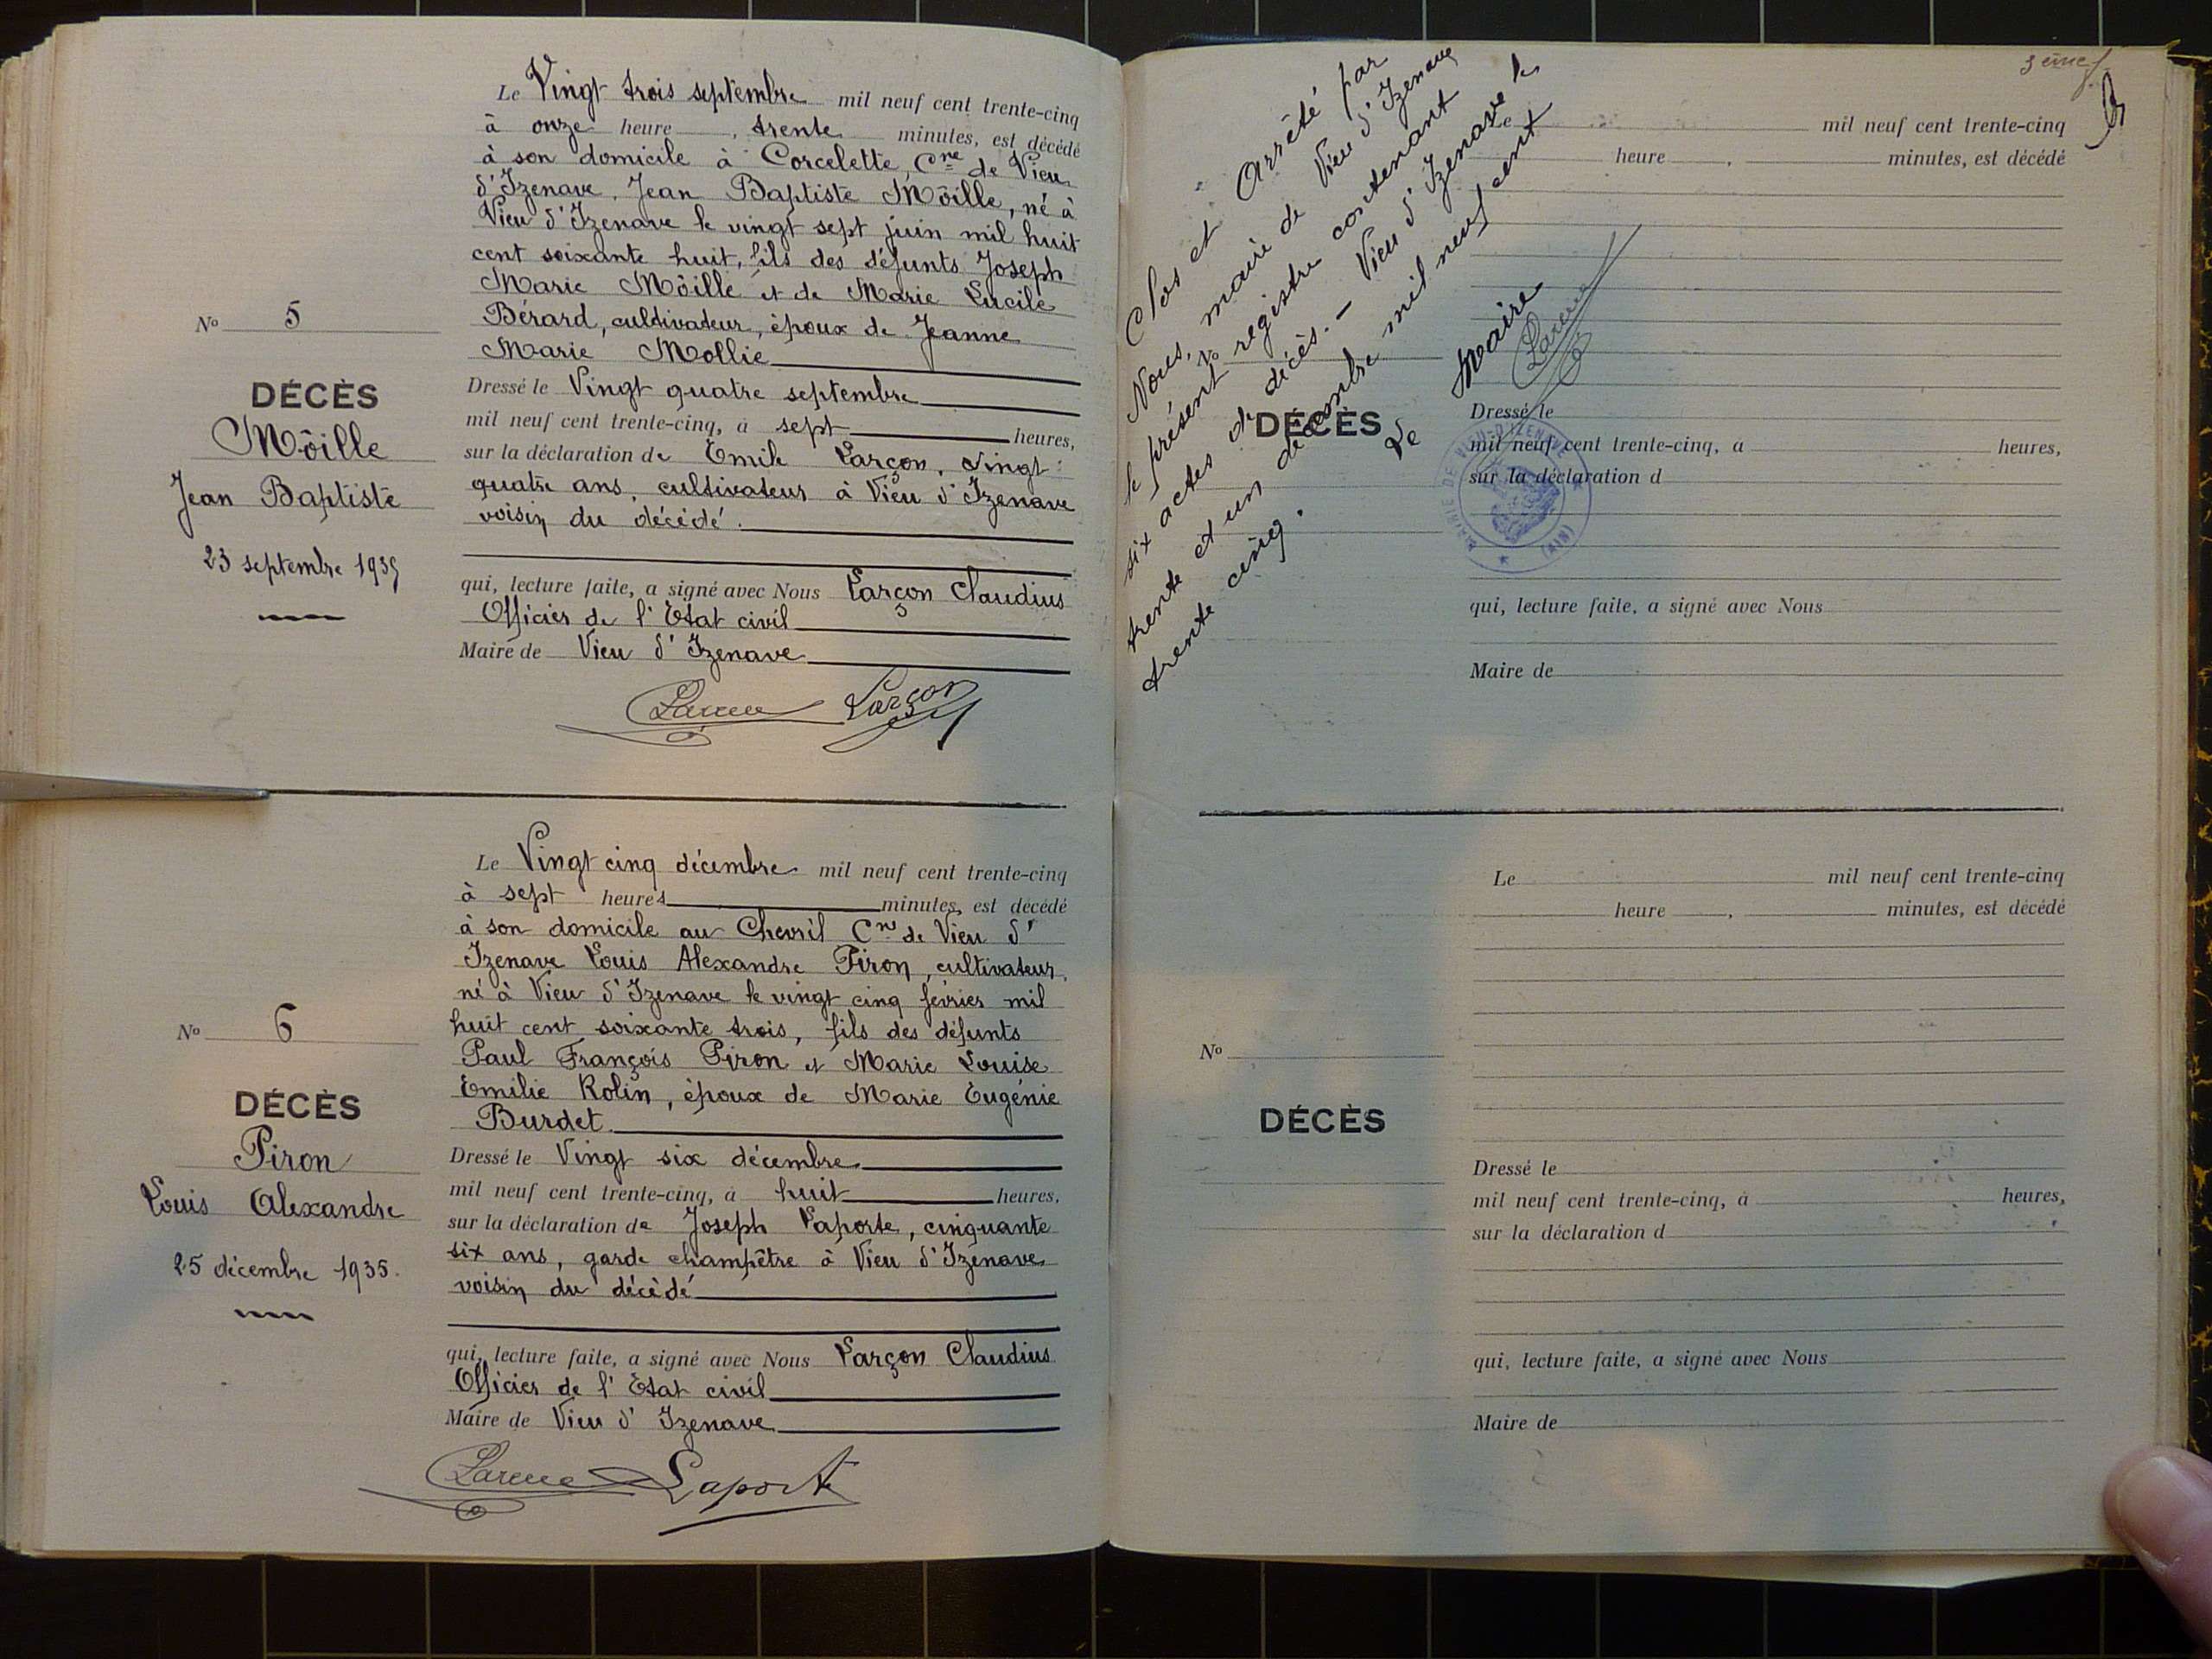 Le Vingt trois septembre mil neuf cent trente-cinq
à onze heure, trente minutes, est décédé
à son domicile à Corcelette, Cne de Vieu
d'Izenave, Jean Baptiste Môille, né à
Vieu d'Izenave le vingt sept juin mil huit
cent soixante huit, fils des défunts Joseph
Marie Môille et de Marie Lucile
Bérard, cultivateur, époux de Jeanne
Marie Mollie
No 5
DÉCÈS
Môille
Jean Baptiste
23 septembre 1935
Dressé le Vingt quatre septembre
mil neuf cent trente-cinq, à sept heures,
sur la déclaration de Emile Larçon, vingt
quatre ans, cultivateur à Vieu d'Izenave
voisin du décédé.
qui, lecture faite, a signé avec Nous Larçon Claudius
Officier de l'Etat civil
Maire de Vieu d'Izenave
Larçon
Le Vingt cinq décembre mil neuf cent trente-cinq
à sept heures minutes, est décédé
à son domicile au Chevril Cne de Vieu d'
Izenave Louis Alexandre Piron, cultivateur,
né à Vieu d'Izenave le vingt cinq février mil
huit cent soixante trois, fils des défunts
Paul François Piron et Marie Louise
Emilie Rolin, époux de Marie Eugénie
Burdet
No 6
DÉCÈS
Piron
Louis Alexandre
25 décembre 1935.
Dressé le Vingt six décembre
mil neuf cent trente-cinq, à huit heures,
sur la déclaration de Joseph Laporte, cinquante
six ans, garde champêtre à Vieu d'Izenave
voisin du décédé
qui, lecture faite, a signé avec Nous Larçon Claudius
Officier de l'Etat civil
Maire de Vieu d'Izenave
Laporte
3ème f
Clos et Arrêté par
Nous, maire de Vieu d'Izenave
le présent registre contenant
six actes de décès. — Vieu d'Izenave le
trente et un décembre mil neuf cent
trente cinq.
Le Maire
MAIRIE DE VIEU-D'IZENAVE
(AIN)
Le mil neuf cent trente-cinq
heure , minutes, est décédé
No
DÉCÈS
Dressé le
mil neuf cent trente-cinq, à heures,
sur la déclaration d
qui, lecture faite, a signé avec Nous
Maire de
Le mil neuf cent trente-cinq
heure , minutes, est décédé
No
DÉCÈS
Dressé le
mil neuf cent trente-cinq, à heures,
sur la déclaration d
qui, lecture faite, a signé avec Nous
Maire de